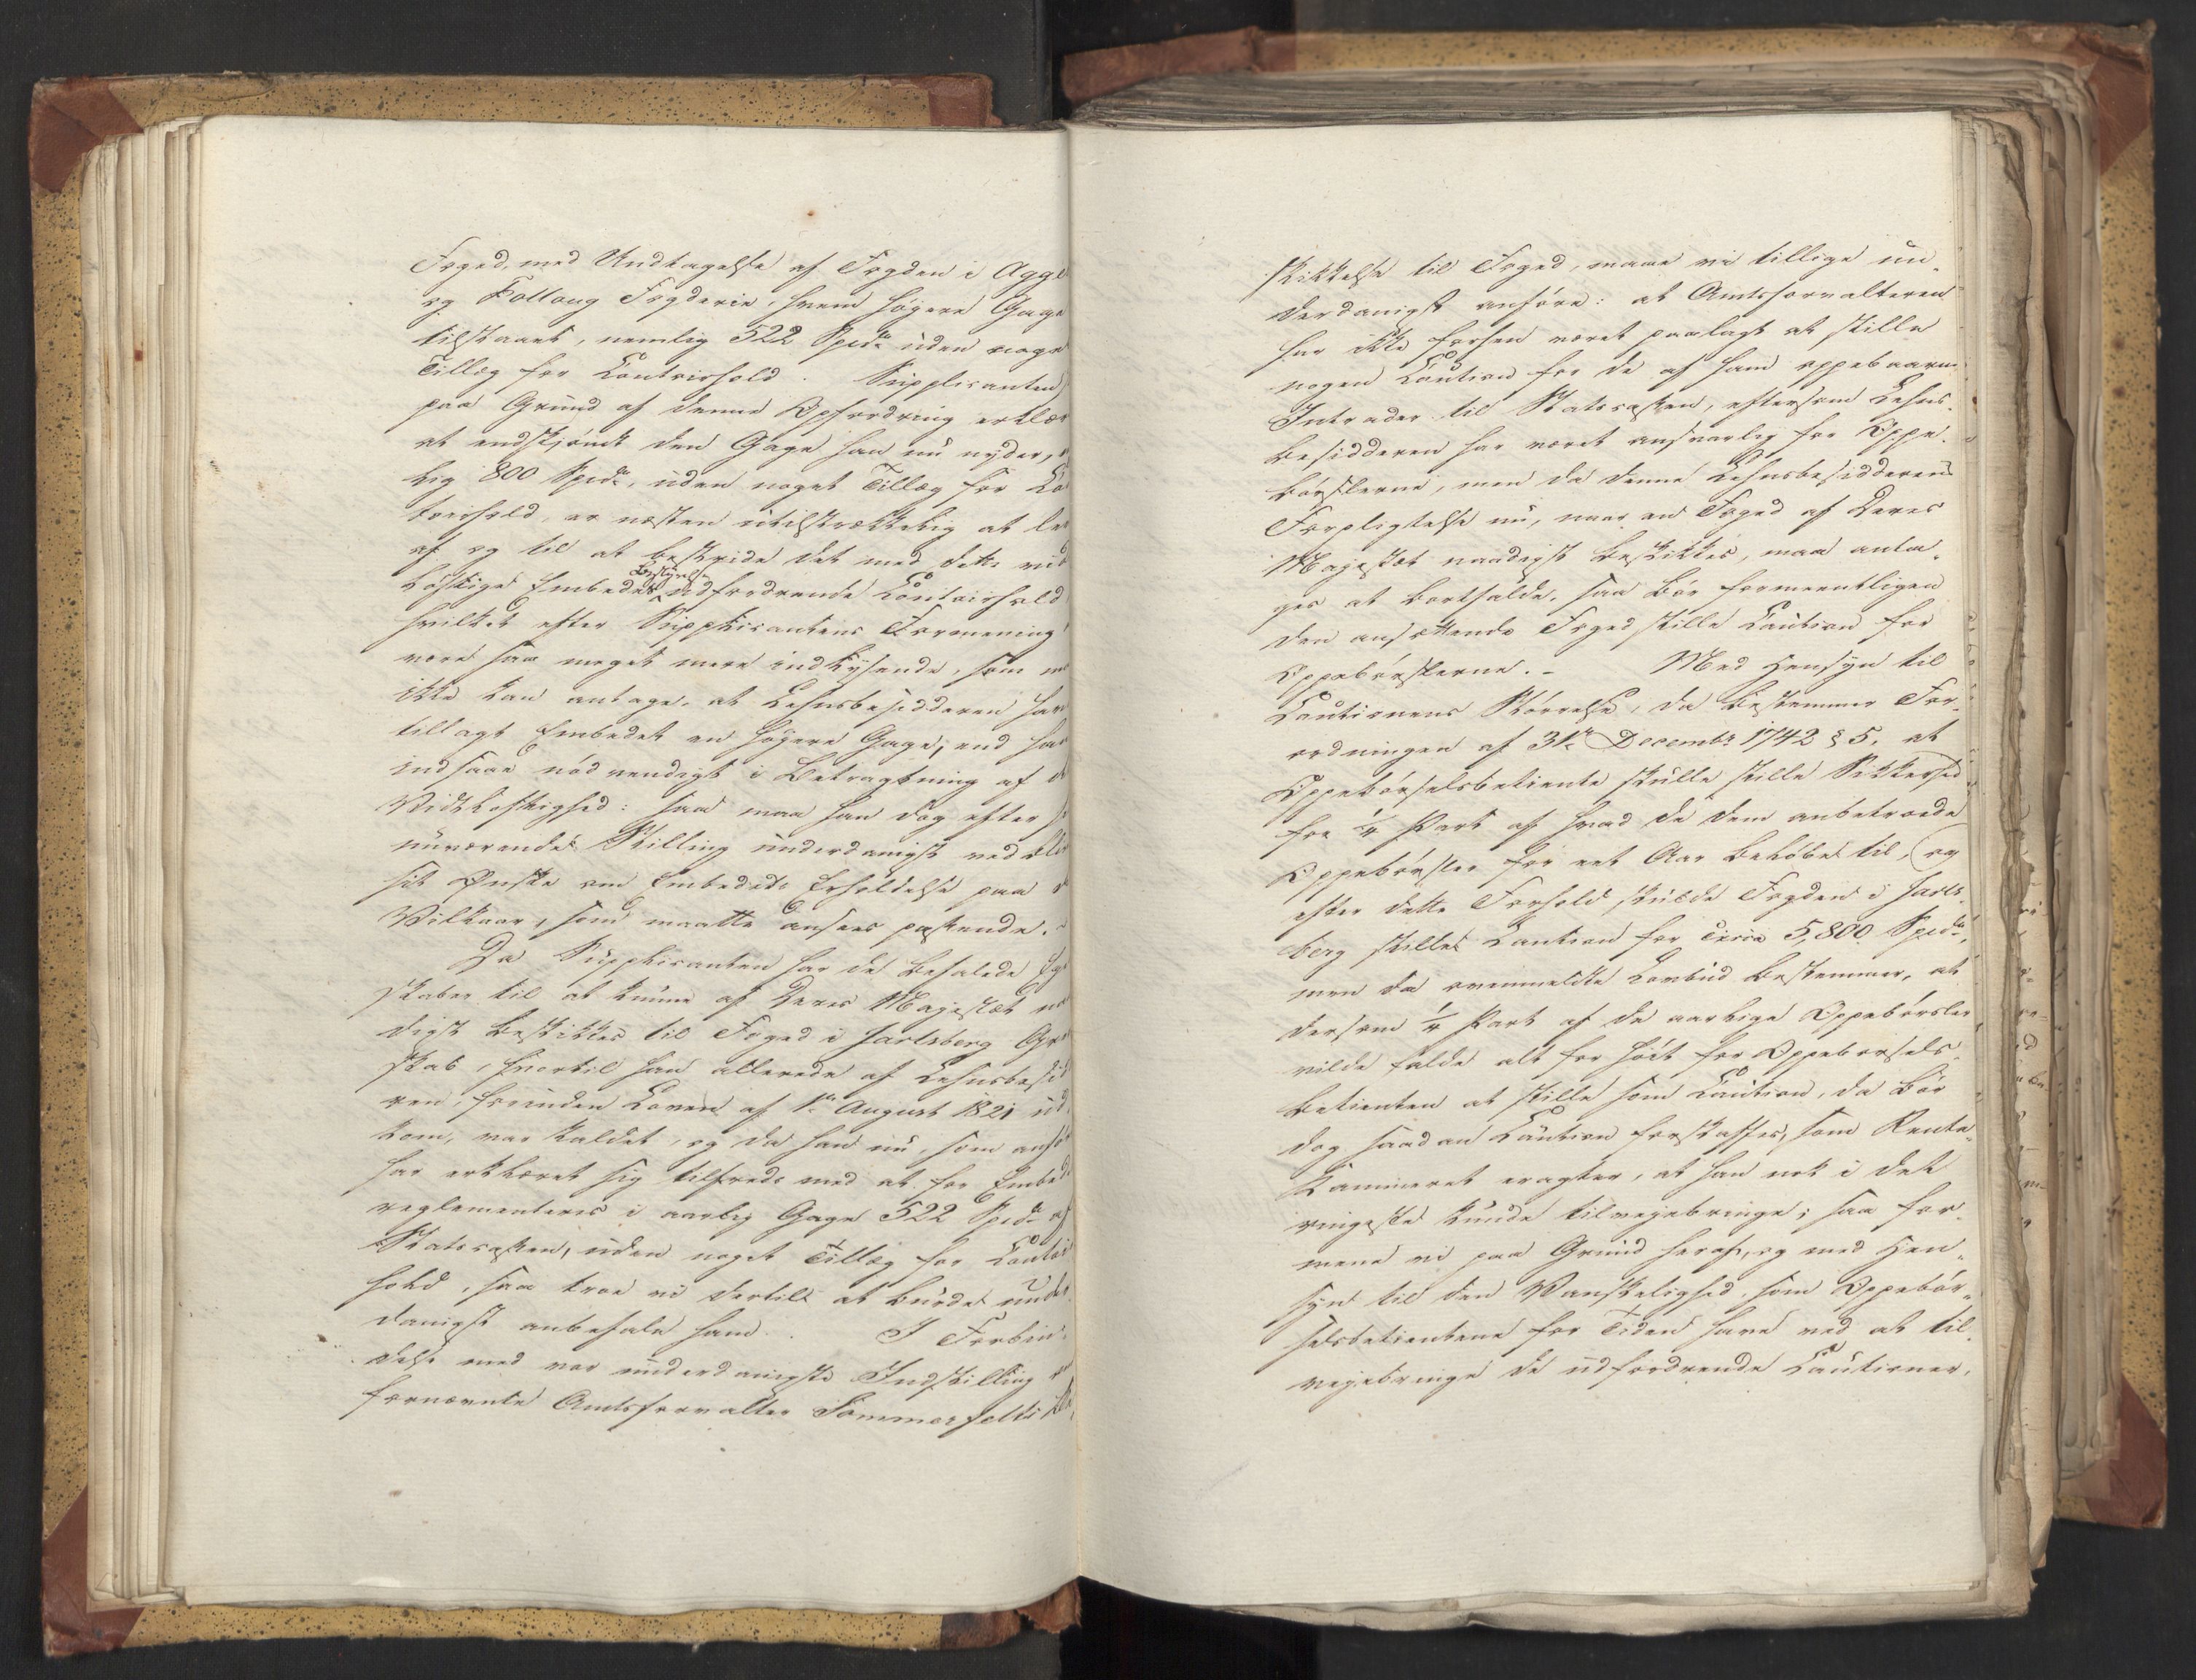 Foged, med Undtagelse af Fogden i Agge
og Follaug Fogderie, hvem høyere Gage
tilstaaes, nemlig 522 Spdr uden noget
Tillæg for Contoirhold. Supplicanten
paa Grund af denne Opfordring erklær
at endskjøndt den Gage han nu nyder,
lig 800 Spdr, uden noget Tillæg for Co
toirhold, er næsten utilstrækkelig at le
af og til at bestride det med dette vid
løftige Embedes Bestyrelse udfordrende Contoirhold
hvilket efter Supplicantens Formening
være saa meget mere indlysende, som m
ikke kan antage, at Lehnsbesidderen har
tillagt Embedet en høyere Gage, end han
indsaae nødvendigt i Betragtning af d
Vidtløftighed: saa maa han dog efter s
nuværende Stilling underdanigst vedbliv
sit Ønske om Embedets Erholdelse paa d
Vilkaar, som maatte ansees passende. -
Da Supplicanten har de befalede Eg
skaber til at kunne af Deres Majestæt naa
digst beskikkes til Foged i Jarlsberg Gre
skab, hvortil han allerede af Lehnsbesid
ren, forinden Loven af 1ste August 1821 ud
kom, var kaldet, og da han nu, som anfø
har erklæret sig tilfreds med at for Embed
reglementeres i aarlig Gage 522 Spdr af
Statscassen, uden noget Tillæg for Contoir
hold, saa troe vi dertil at burde under
danigst anbefale ham. I Forbin-
delse med vor underdanigste Indstilling o
fornævnte Amtsforvalter Sommerfeldts be
skikkelse til Foged, maae vi tillige un-
derdanigst anføre: at Amtsforvalteren
har ikke forhen været paalagt at stille
nogen Caution for de af ham oppebaarne
Intrader til Statscassen, eftersom Lehns-
besidderen har været ansvarlig for Oppe-
børslerne, men da denne Lehnsbesidderens
Forpligtelse nu, naar en Foged af Deres
Majestæt naadigst beskikkes, maa anta-
ges at bortfalde, saa bør formeentligen
den ansættende Foged stille Caution for
Oppebørslerne. - Med Hensyn til
Cautionens Størrelse, da bestemmer For-
ordningen af 31te Decembr 1742 § 5, at
Oppebørselsbetiente skulle stille Sikkerhed
for 1/4 Part af hvad de dem anbetroede
Oppebørsler for eet Aar beløbe til, og
efter dette Forhold skulde Fogden i Jarls-
berg stille Caution for circa 5,800 Spdr,
men da ovenmeldte Lovbud bestemmer, at
dersom 1/4 Part af de aarlige Oppebørsler
vilde falde alt for høit for Oppebørsels-
betienten at stille som Caution, da bør
dog saadan Caution forskaffes, som Rente-
kammeret eragter, at han nok i det
ringeste kunde tilvejebringe; saa for-
mene vi paa Grund heraf, og med Hen-
syn til den Vanskelighed, som Oppebør-
selsbetientene for Tiden have ved at til-
vejebringe de udfordrende Cautioner,